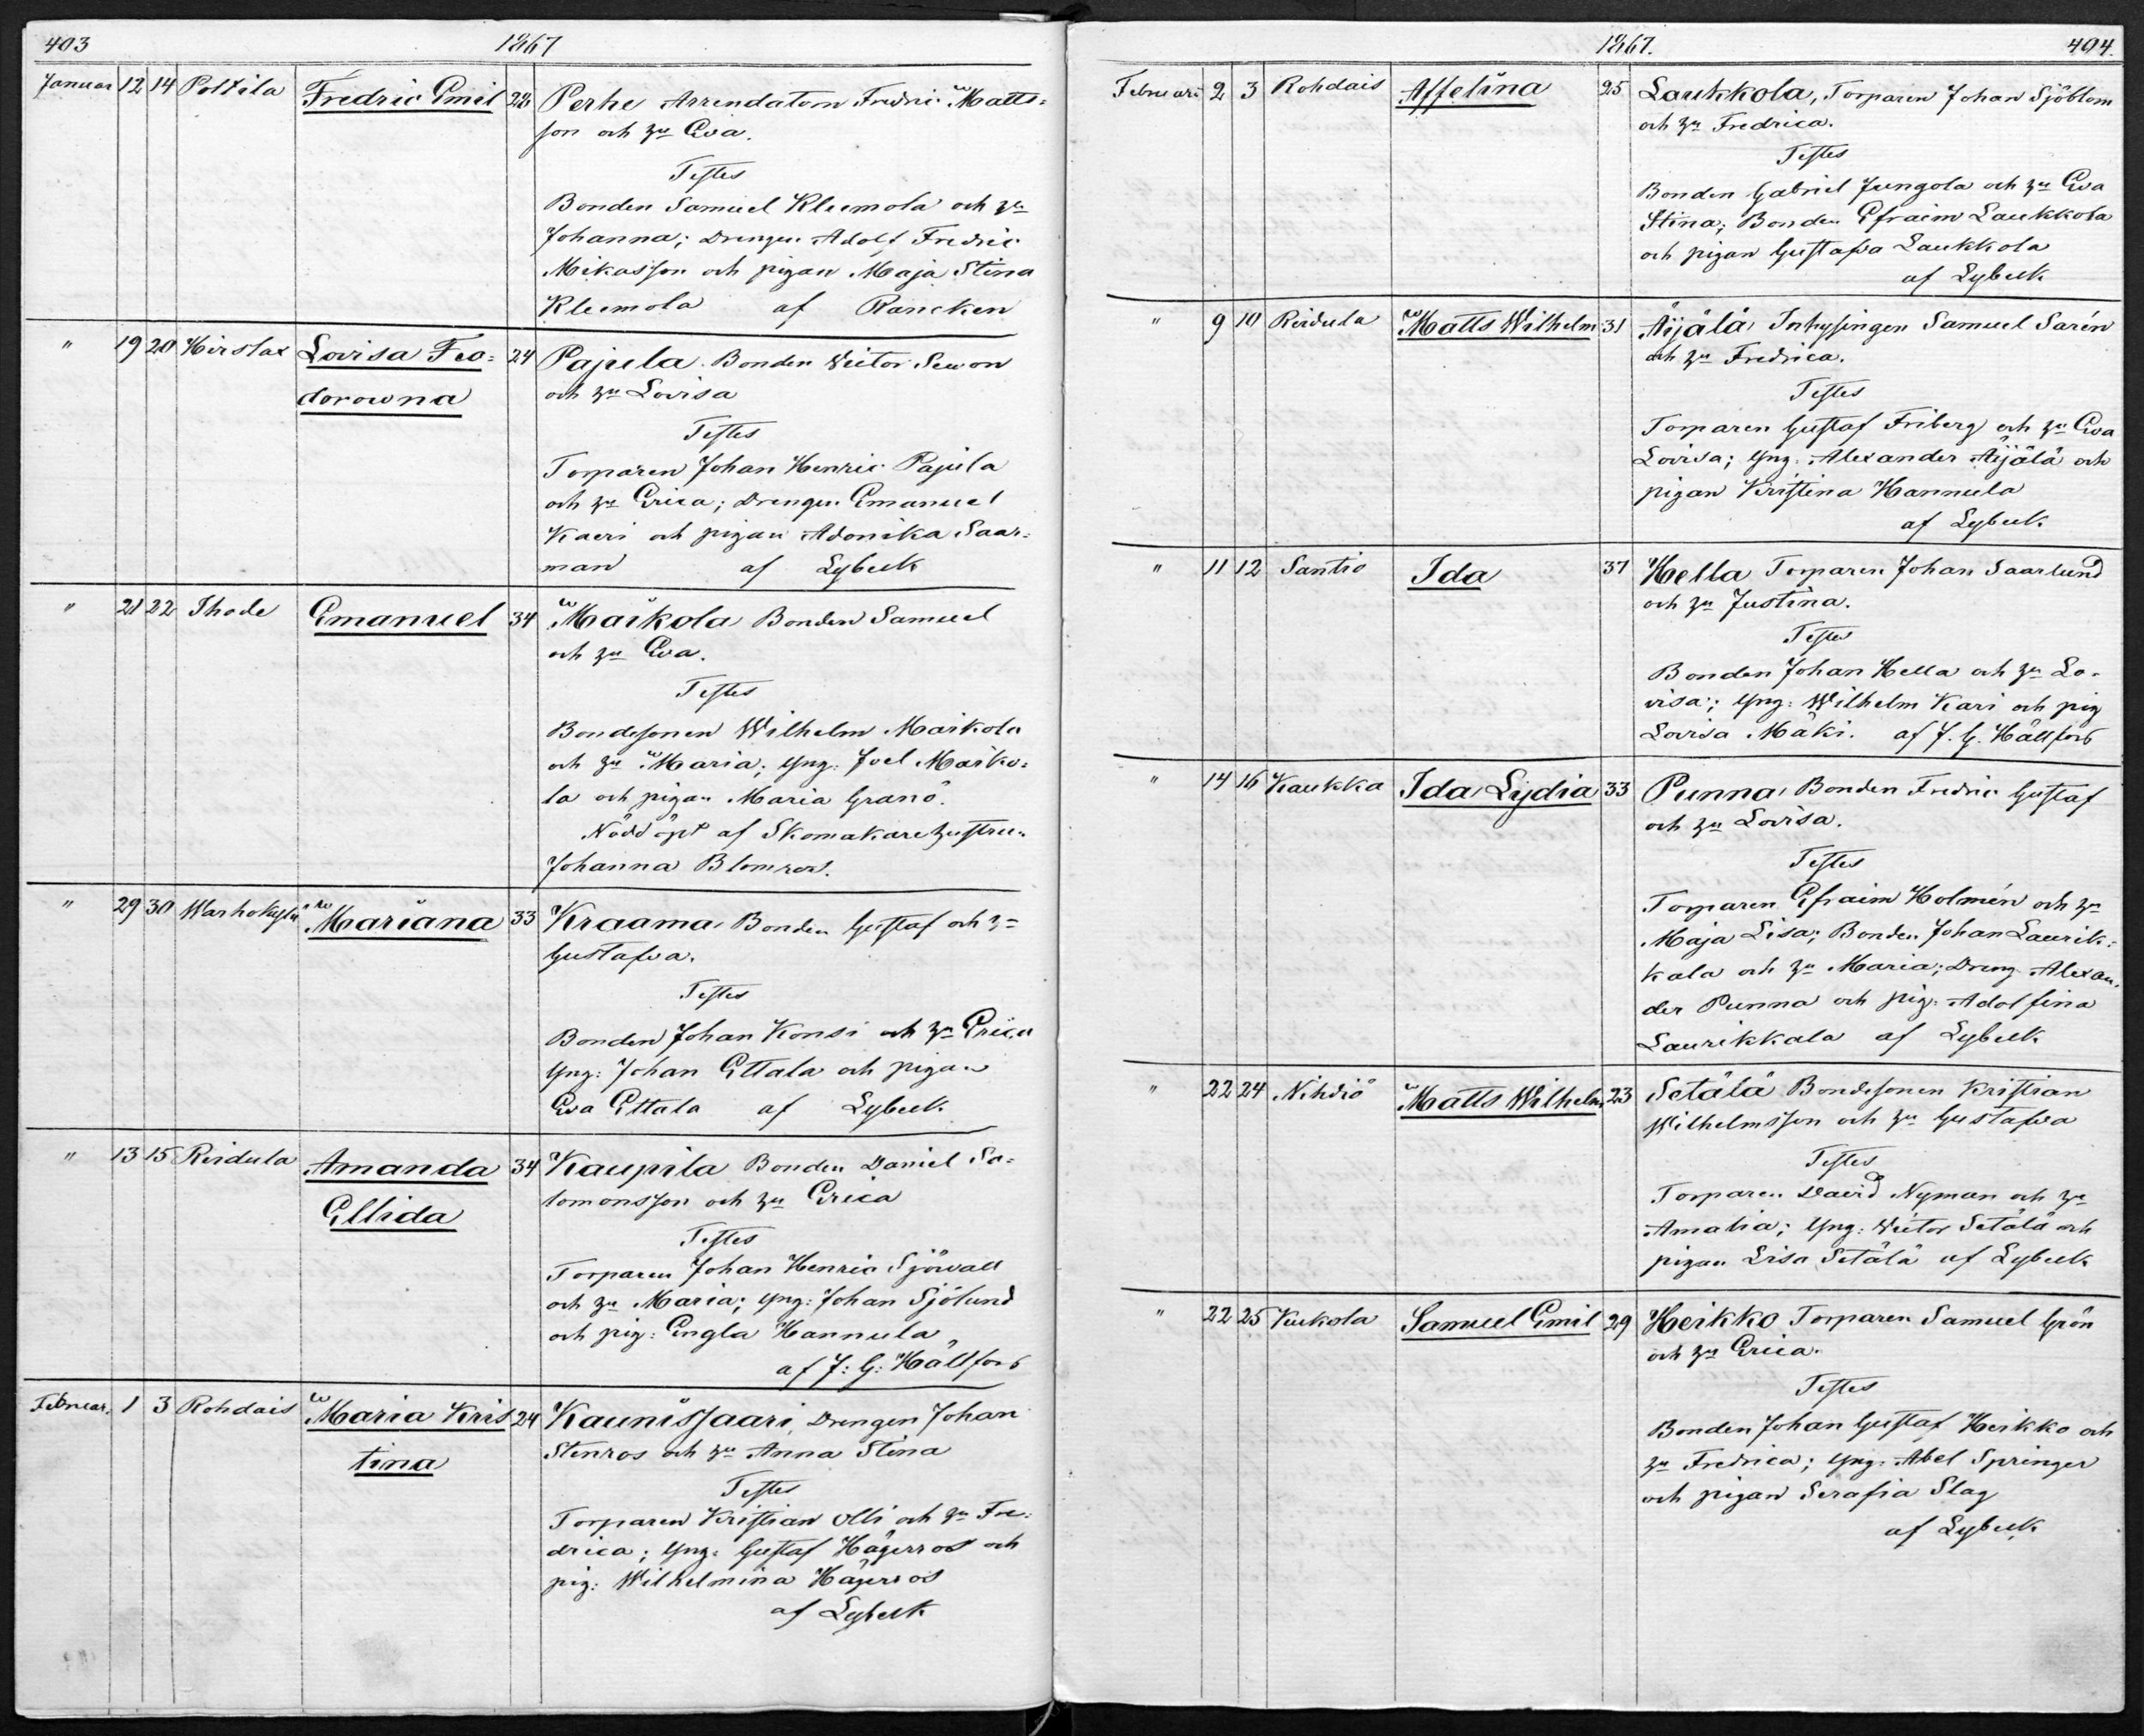 403 1867
Januar 12 14 Poltila Fredric Emil 28 Perhe Arrendatorn Fredric Matts=
son och hu Eva.
Testes
Bonden Samuel Kleemola och hu
Johanna; Drengen Adolf Fredric
Mikasson och pigan Maja Stina
Kleemola af Rancken
" 19 20 Hirslax Lovisa Feo= 24 Pajula Bonden Victor Sewon
dorowna och hu Lovisa
Testes
Torparen Johan Henric Pajula
och hu Erica; Drengen Emanuel
Kaeri och pigan Adonika Saar=
man af Lybeck
" 21 22 Thode Emanuel 34 Maikola Bonden Samuel
och hu Eva.
Testes
Bondesonen Wilhelm Maikola
och hu Maria; Yng: Joel Maiko=
la och pigan Maria Granö.
Nöddöpt af Skomakarehustru
Johanna Blomros.
" 29 30 Warhokylä Mariana 33 Kraama Bonden Gustaf och hu
Gustafva.
Testes
Bonden Johan Konsi och hu Erica
Yng: Johan Ettala och pigan
Eva Ettala af Lybeck
" 13 15 Reidula Amanda 34 Kaupila Bonden Daniel Sa=
Ellida lomonsson och hu Erica
Testes
Torparen Johan Henric Sjöwall
och hu Maria; Yng: Johan Sjölund
och pig: Engla Hannula
af J: G: Hällfors
Februar. 1 3 Rohdais Maria Kris 24 Kaunissaari, Drengen Johan
tina Stenros och hu Anna Stina
Testes
Torparen Kristian Olli och hu Fre=
drica; Yng: Gustaf Hägerros och
pig: Wilhelmina Hägerros
af Lybeck
1867. 404.
Februari 2 3 Rohdais Asselina 25 Laukkola, Torparen Johan Sjöblom
och hu Fredrica.
Testes
Bonden Gabriel Jungola och hu Eva
Stina; Bonden Efraim Laukkola
och pigan Gustafva Laukkola
af Lybeck
" 9 10 Reidula Matts Wilhelm 31 Äijälä Inhysingen Samuel Sarén
och hu Fredrica.
Testes
Torparen Gustaf Friberg och hu Eva
Lovisa; Yng. Alexander Äijälä och
pigan Kristina Hannula
af Lybeck.
" 11 12 Santio Ida 37 Hella Torparen Johan Saarlund
och hu Justina.
Testes
Bonden Johan Hella och hu Lo=
visa; Yng: Wilhelm Kari och pig
Lovisa Mäki. af J. G. Hällfors
" 14 16 Kaukka Ida Lydia 33 Punna Bonden Fredric Gustaf
och hu Lovisa.
Testes
Torparen Efraim Holmén och hu
Maja Lisa; Bonden Johan Laurik=
kala och hu Maria; Dreng Alexan=
der Punna och pig: Adolfina
Laurikkala af Lybeck
" 22 24 Nihdiö Matts Wilhelm 23 Setälä Bondesonen Kristian
Wilhelmsson och hu Gustafva
Testes
Torparen David Nyman och hu
Amalia; Yng: Victor Setälä och
pigan Lisa Setälä af Lybeck
" 22 25 Kukola Samuel Emil 29 Heikko Torparen Samuel Grön
och hu Erica.
Testes
Bonden Johan Gustaf Heikko och
hu Fredrica; Yng: Abel Springer
och pigan Serafia Slag
af Lybeck